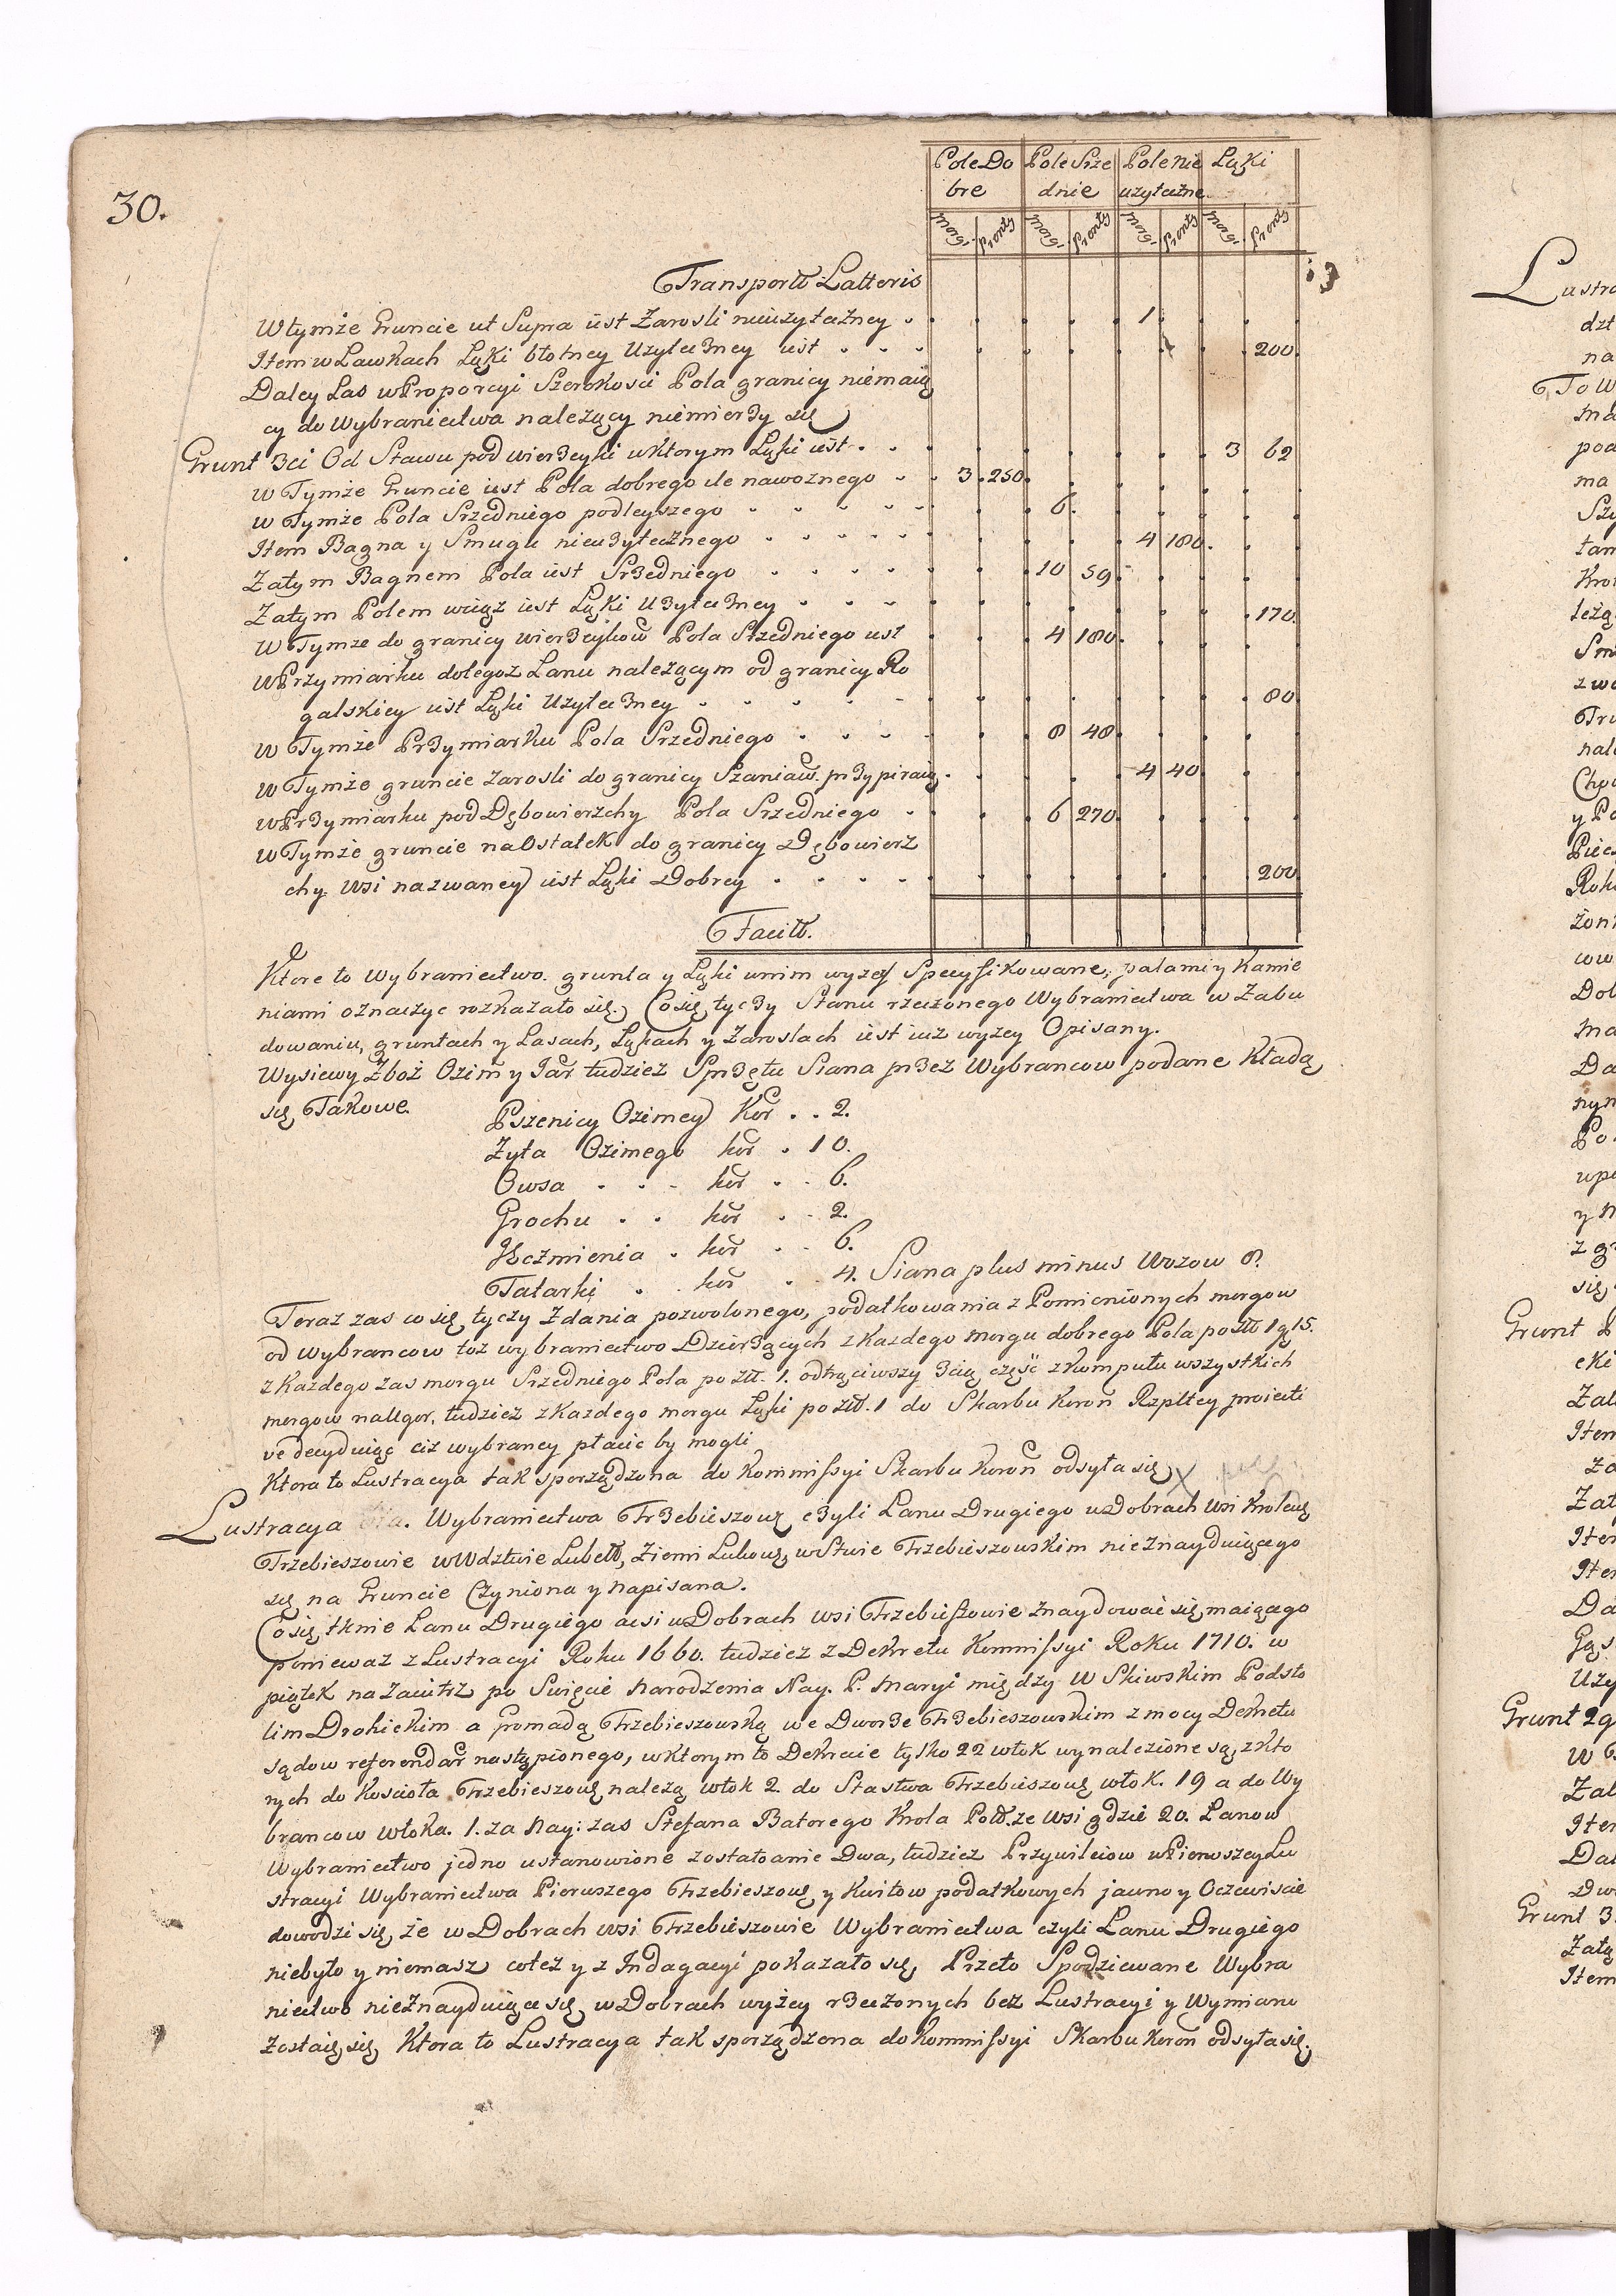 30.
Pole Do Pole Srze Pole Nie Łąki
bre dnie uzyteczne
Morgi Pronty Morgi Pronty Morgi Pronty Morgi Pronty
Transportt Latteris
W tymże Gruncie ut Supra iest Zarosli nieuzyteczney . 1
Item w Ławkach Łąki błotney Uzyteczney iest . . . 200.
Daley Las w Proporcyi Szerokosci Pola granicy niemaią
cy do Wybraniectwa należący niemierzy się
Grunt 3ci Od Stawu pod wierzcyki w ktorym Łąki iest . . 3 62
w Tymże Gruncie iest Pola dobrego ile nawoznego . . 3 . 250.
w Tymże Pola Srzedniego podleyszego . . . . . 6.
Item Bagna y Smugu nieuzytecznego . . . . . 4 180.
Zatym Bagnem Pola iest Srzedniego . . . . 10 59
Zatym Polem wciąż iest Łąki Uzyteczney . . . 170.
W Tymże do granicy wierzcykow Pola Srzedniego iest 4 180.
w Przymiarku do tegoz Lanu nalezącym od granicy Ro
galskiey iest Łąki Uzyteczney . . . . . 80
w Tymże Przymiarku Pola Srzedniego . . . . 8 40.
w Tymże gruncie zarosli do granicy Szaniaw. przypiraią . 4 40.
w Przymiarku pod Dębowierzchy Pola Srzedniego . 6 270.
w Tymże gruncie na Ostatek do granicy Dębowierz
chy wsi nazwaney iest Łąki Dobrey . . . . . 200.
Facitt.
Ktore to Wybraniectwo. grunta y Łąki w nim wyzey Specyfikowane, palami y Kamie
niami oznaczyc rozkazało się. Co się tyczy Stanu rzeczonego Wybraniectwa w Zabu
dowaniu, gruntach y Lasach, Łąkach y Zaroslach iest iuz wyzey Opisany.
Wysiewy Zboż Ozim y Jar tudziez Sprzętu Siana przez Wybrancow podane Kładą
się Takowe.
Pszenicy Ozimey Kor . . 2.
Zyta Ozimego kor . 10.
Owsa . . . kor . . 6.
Grochu . . kor . . 2.
Jęczmienia . kor . . 6.
Tatarki . . kor . . 4. Siana plus minus Wozow 8.
Teraz zas co się tyczy Zdania pozwolonego, podatkowania z Pomienionych morgow
od wybrancow toz wybraniectwo Dzierzących z Kazdego morgu dobrego Pola po złł 1 g 15.
z Kazdego zas morgu Srzedniego Pola po złł. 1. odtrąciwszy 3cią część z komputu wszystkich
morgow nallgor, tudziez z Kazdego morgu Łąki po złł. 1 do Skarbu Koron Rzpltey proiecti
ve decyduiąc ciz wybrancy płacic by mogli
Ktora to Lustracya tak sporządzona do Kommissyi Skarbu Koron odsyła się X
Lustracya Wybraniectwa Trzebieszows czyli Lanu Drugiego w Dobrach Wsi Krolews
Trzebieszowie w Wdztwie Lubell, Ziemi Lukows, w Stwie Trzebieszowskim nieznayduiącego
się na Gruncie Czyniona y napisana.
Co się tknie Lanu Drugiego acsi w Dobrach wsi Trzebieszowie Znaydowac się maiącego
poniewaz z Lustracyi Roku 1660. tudziez z Dekretu Kommissyi Roku 1710. w
piątek nazaiutrz po Swięcie Narodzenia Nay. P. Maryi między W Skiwskim Podsto
lim Drohickim a Gromadą Trzebieszowską we Dworze Trzebieszowskim z mocy Dekretu
sądow referendar nastąpionego, w ktorym to Dekrecie tylko 22 włok wynalezione są, z kto
rych do Kosciola Trzebieszows należą włok 2. do Stastwa Trzebieszows włok. 19 a do Wy
brancow włoka. 1. za Nay: zas Stefana Batorego Krola Poll. ze wsi gdzie 20. Lanow
Wybraniectwo jedno ustanowione zostało a nie Dwa, tudziez Przywileiow w Pierwszey Lu
stracyi Wybraniectwa Pierwszego Trzebieszows, y Kwitow podatkowych jawno y Oczewiscie
dowodzi się, że w Dobrach wsi Trzebieszowie Wybraniectwa czyli Lanu Drugiego
niebyło y niemasz co tez y z Indagacyi pokazało się, Przeto Spodziewane Wybra
niectwo nieznayduiące się w Dobrach wyżey rzeczonych bez Lustracyi y Wymiaru
Zostaie się Ktora to Lustracya tak sporządzona do Kommissyi Skarbu Koron odsyła się.